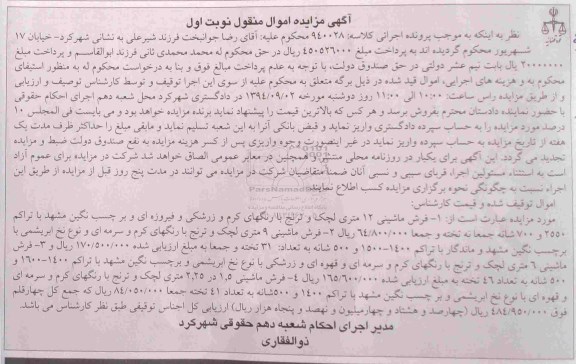 آگهی مزایده اموال منقول نوبت اول
نظر به اینکه به موجب پرونده اجرائی کلاسه: ۹۴۰۰۲۸ محکوم علیه: آقای رضا جوانبخت فرزند شیرعلی به نشانی شهرکرد- خیابان ۱۷
شهریور محکوم گردیده اند به پرداخت مبلغ ۴۵۰۵۲۶۰۰۰ ریال در حق محکوم له محمد محمدی ثانی فرزند ابوالقاسم و پرداخت مبلغ
۲۰۰۰۰۰۰۰ یال بابت نیم عشر دولتی در حق صندوق دولت، با توجه به عدم پرداخت مبالغ فوق و بنا به درخواست محکوم له به منظور استیفای
محکوم به و هزینه های اجرایی، اموال قید شده در ذیل برگه متعلق به محکوم علیه از سوی این اجرا توقیف و توسط کارشناس توصیف و ارزیابی
و از طریق مزایده راس ساعت: ۱۰:۰۰ الی ۱۱:۰۰ روز دوشنبه مورخه ۱۳۹۴/۰۹/۰۲ در دادگستری شهرکرد محل شعبه دهم اجرای احکام حقوقی
با حضور نماینده دادستان محترم بفروش برسد و هر کس که بالاترین قیمت را پیشنهاد نماید برنده مزایده خواهد بود و می بایست فی المجلس ۱۰
درصد مورد مزایده را به حساب سپرده دادگستری واریز نماید و قبض بانکی آنرا به این شعبه تسلیم نماید و مابقی مبلغ را حداکثر ظرف مدت یک
هفته از تاریخ مزایده به حساب سپرده واریز نماید در غیر اینصورت وجوه واریزی پس از کسر هزینه مزایده به نفع صندوق دولت ضبط و مزایده
تجدید می گردد. این آگهی برای یکبار در روزنامه محلی منتشر و همچنین در معابر عمومی الصاق خواهد شد شرکت در مزایده برای عموم آزاد
است به استثناء مسئولین اجراء قربای سببی و نسبی آنان ضمناً متقاضیان شرکت در مزایده می توانند در مدت پنج روز قبل از مزایده از طریق این
اجراء نسبت به چگونگی نحوه برگزاری مزایده کسب اطلاع نمایند.
اموال توقیف شده و قیمت کارشناس:
مورد مزایده عبارت است از: ۱- فرش ماشینی ۱۲ متری لچک و ترنج با رنگهای کرم و زرشکی و فیروزه ای و بر چسب نگین مشهد با تراکم
۲۵۵۰ و ۷۰۰ شانه جمعا نه تخته و جمعا ۶۴/۸۰۰/۰۰۰ یال ۲- فرش ماشینی ۹ متری لچک و ترنج با رنگهای کرم و سرمه ای و نوع نخ ابریشمی با
برچسب نگین مشهد و ماندگار با تراکم ۱۴۰۰-۱۵۰۰ و ۵۰۰ شانه به تعداد: ۳۱ تخته و جمعا به مبلغ ارزیابی شده ۱۷۰/۵۰۰/۰۰۰ ریال ۳- فرش
ماشینی ۶ متری لچک و ترنج با رنگهای کرم و سرمه ای و قهوه ای و زرشکی با نوع نخ ابریشمی و برچسب نگین مشهد با تراکم ۱۴۰۰-۱۶۰۰ و
۵۰۰ شانه به تعداد ۴۶ تخته به مبلغ ارزیابی شده ۱۶۵/۶۰۰/۰۰۰ ریال ۴- فرش ماشینی ۱,۵ در ۲,۲۵ متری لچک و ترنج با رنگهای کرم و سرمه ای
و قهوه ای با نوع نخ ابریشمی و بر چسب نگین مشهد با تراکم ۱۴۰۰ و ۵۰۰شانه به تعداد ۴۱ تخته جمعا ۸۴/۰۵۰/۰۰۰ ریال که جمع کل چهارقلم
فوق ۴۸۴/۹۵۰/۰۰۰ ریال (چهارصد و هشتاد و چهارمیلیون و نهصد و پنجاه هزار ریال) ارزیابی کل اجناس توقیفی طبق نظر کارشناس می باشد.
مدیر اجرای احکام شعبه دهم حقوقی شهرکرد
ذوالفقاری